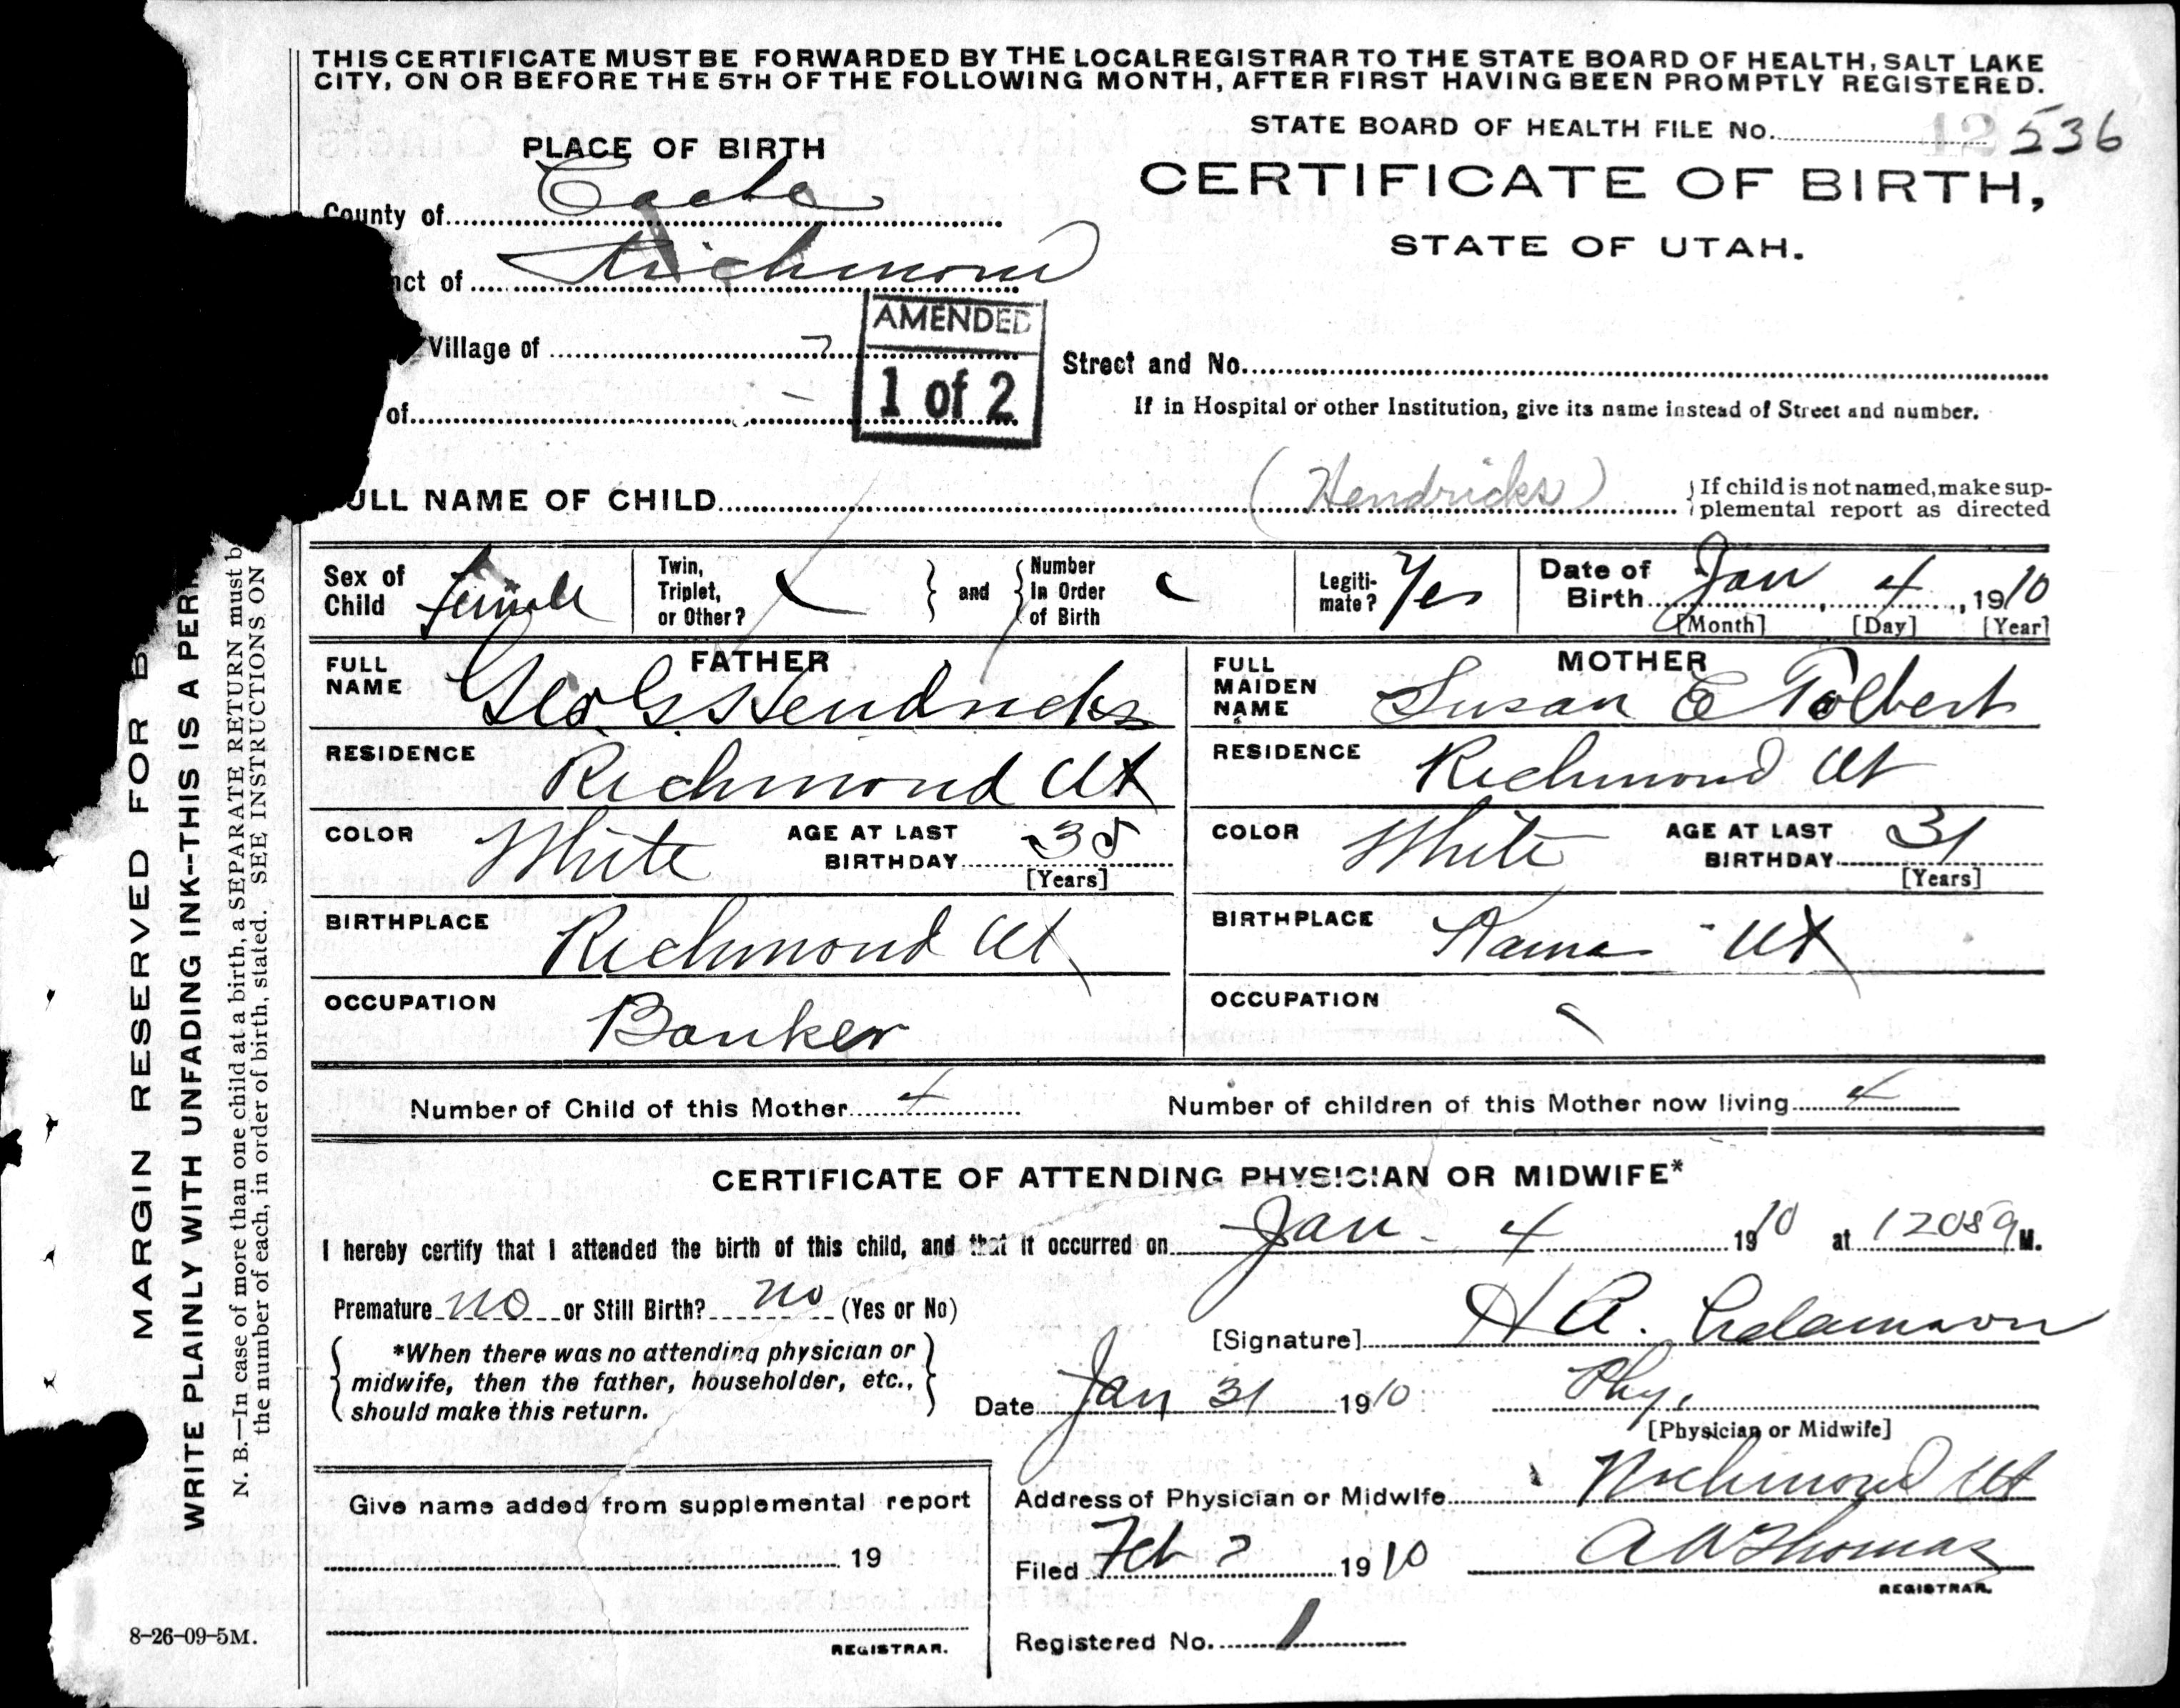 THIS CERTIFICATE MUST BE FORWARDED BY THE LOCAL REGISTRAR TO THE STATE BOARD OF HEALTH, SALT LAKE
CITY, ON OR BEFORE THE 5TH OF THE FOLLOWING MONTH, AFTER FIRST HAVING BEEN PROMPTLY REGISTERED.
STATE BOARD OF HEALTH FILE No. 12 536
PLACE OF BIRTH
CERTIFICATE OF BIRTH,
STATE OF UTAH.
County of Cache
nct of Richmond
Village of
AMENDED
1 of 2
Street and No.
of
If in Hospital or other Institution, give its name instead of Street and number.
ULL NAME OF CHILD (Hendricks)
If child is not named, make sup-
plemental report as directed
Sex of Child female
Twin, Triplet, or Other?
and
Number In Order of Birth
Legiti-mate? Yes
Date of Birth Jan 4, 1910
[Month] [Day] [Year]
FATHER
FULL NAME Geo G Hendricks
MOTHER
FULL MAIDEN NAME Susan E Tolbert
RESIDENCE Richmond Ut
RESIDENCE Richmond Ut
COLOR White AGE AT LAST BIRTHDAY 35 [Years]
COLOR White AGE AT LAST BIRTHDAY 31 [Years]
BIRTHPLACE Richmond Ut
BIRTHPLACE Ut
OCCUPATION Banker
OCCUPATION
Number of Child of this Mother 4
Number of children of this Mother now living 4
CERTIFICATE OF ATTENDING PHYSICIAN OR MIDWIFE*
I hereby certify that I attended the birth of this child, and that it occurred on Jan - 4 1910 at M.
Premature no or Still Birth? no (Yes or No)
[Signature] H A. Adamson
*When there was no attending physician or
midwife, then the father, householder, etc.,
should make this return.
Date Jan 31 1910
Phy.
[Physician or Midwife]
Address of Physician or Midwife Richmond Ut
Give name added from supplemental report
19
REGISTRAR.
Filed Feb 1910 A W Thomas
REGISTRAR.
Registered No. 1
8-26-09-5M.
MARGIN RESERVED FOR B
WRITE PLAINLY WITH UNFADING INK--THIS IS A PER
N. B.—In case of more than one child at a birth, a SEPARATE RETURN must b
the number of each, in order of birth, stated. SEE INSTRUCTIONS ON